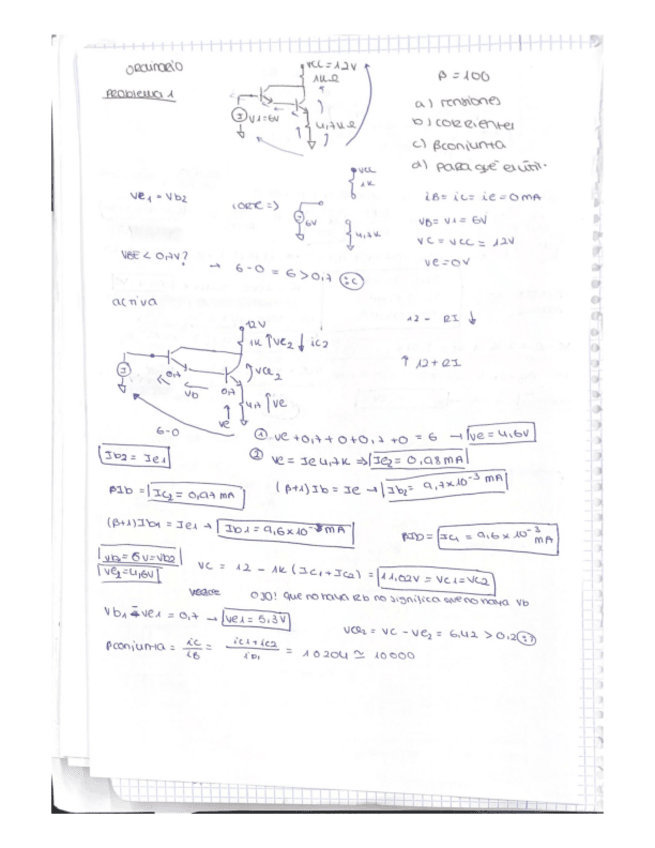 ordinario
Problema 1
VCC = 12V
1kΩ
V1=6V
4,7kΩ
β = 100
a) tensiones
b) corrientes
c) βconjunta
d) para qué es útil.
Ve1 = Vb2
corte =>
VCC
1K
6V
4,7K
iB = iC = ie = 0mA
VB = V1 = 6V
VC = VCC = 12V
Ve = 0V
VBE < 0,7V? → 6-0 = 6 > 0,7 :(
activa
12V
1K ↑VE2 ↓ iC2
VCE2
0,7
VD
0,7
4,7 ↑Ve
Ve
6-0
12 - RI ↓
↑ 12+RI
① Ve+0,7+0+0,7+0 = 6 → Ve=4,6V
Ib2 = Ie1
② Ve = Ie 4,7K => Ie2 = 0,98mA
βIb = IC2 = 0,97 mA
(β+1)Ib = Ie → Ib2 = 9,7x10⁻³ mA
(β+1)Ib1 = Ie1 → Ib1 = 9,6x10 mA
βIb = IC1 = 9,6x10⁻³ mA
= 6V = Vb2
Ve2=4,6V
VC = 12 - 1K (IC1+IC2) = 11,02V = VC1=VC2
OJO! que no haya Rb no significa que no haya Vb
Vb1 - Ve1 = 0,7 → Ve1 = 5,3V
VCE2 = VC - Ve2 = 6,42 > 0,2 :)
βconjunta = iC/iB = iC1+iC2/ib1 = 10204 ≃ 10000